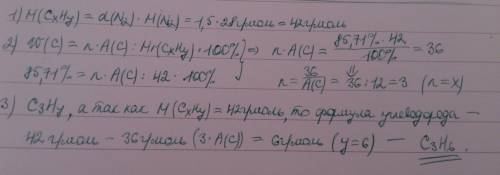 1) M(CxHy) = d(N₂) · M(N₂) = 1,5 · 28г/моль = 42г/моль
2) W(C) = n · A(C) : Mr(CxHy) · 100% ⇒ n · A(C) = 85,71% · 42 / 100% = 36
85,71% = n · A(C) : 42 · 100% n = 36 / A(C) = 36 : 12 = 3 (n = x)
3) C₃Hy, а так как M(CxHy) = 42г/моль, то формула углеводорода –
42 г/моль – 36г/моль (3 · A(C)) = 6г/моль (y = 6) – C₃H₆.